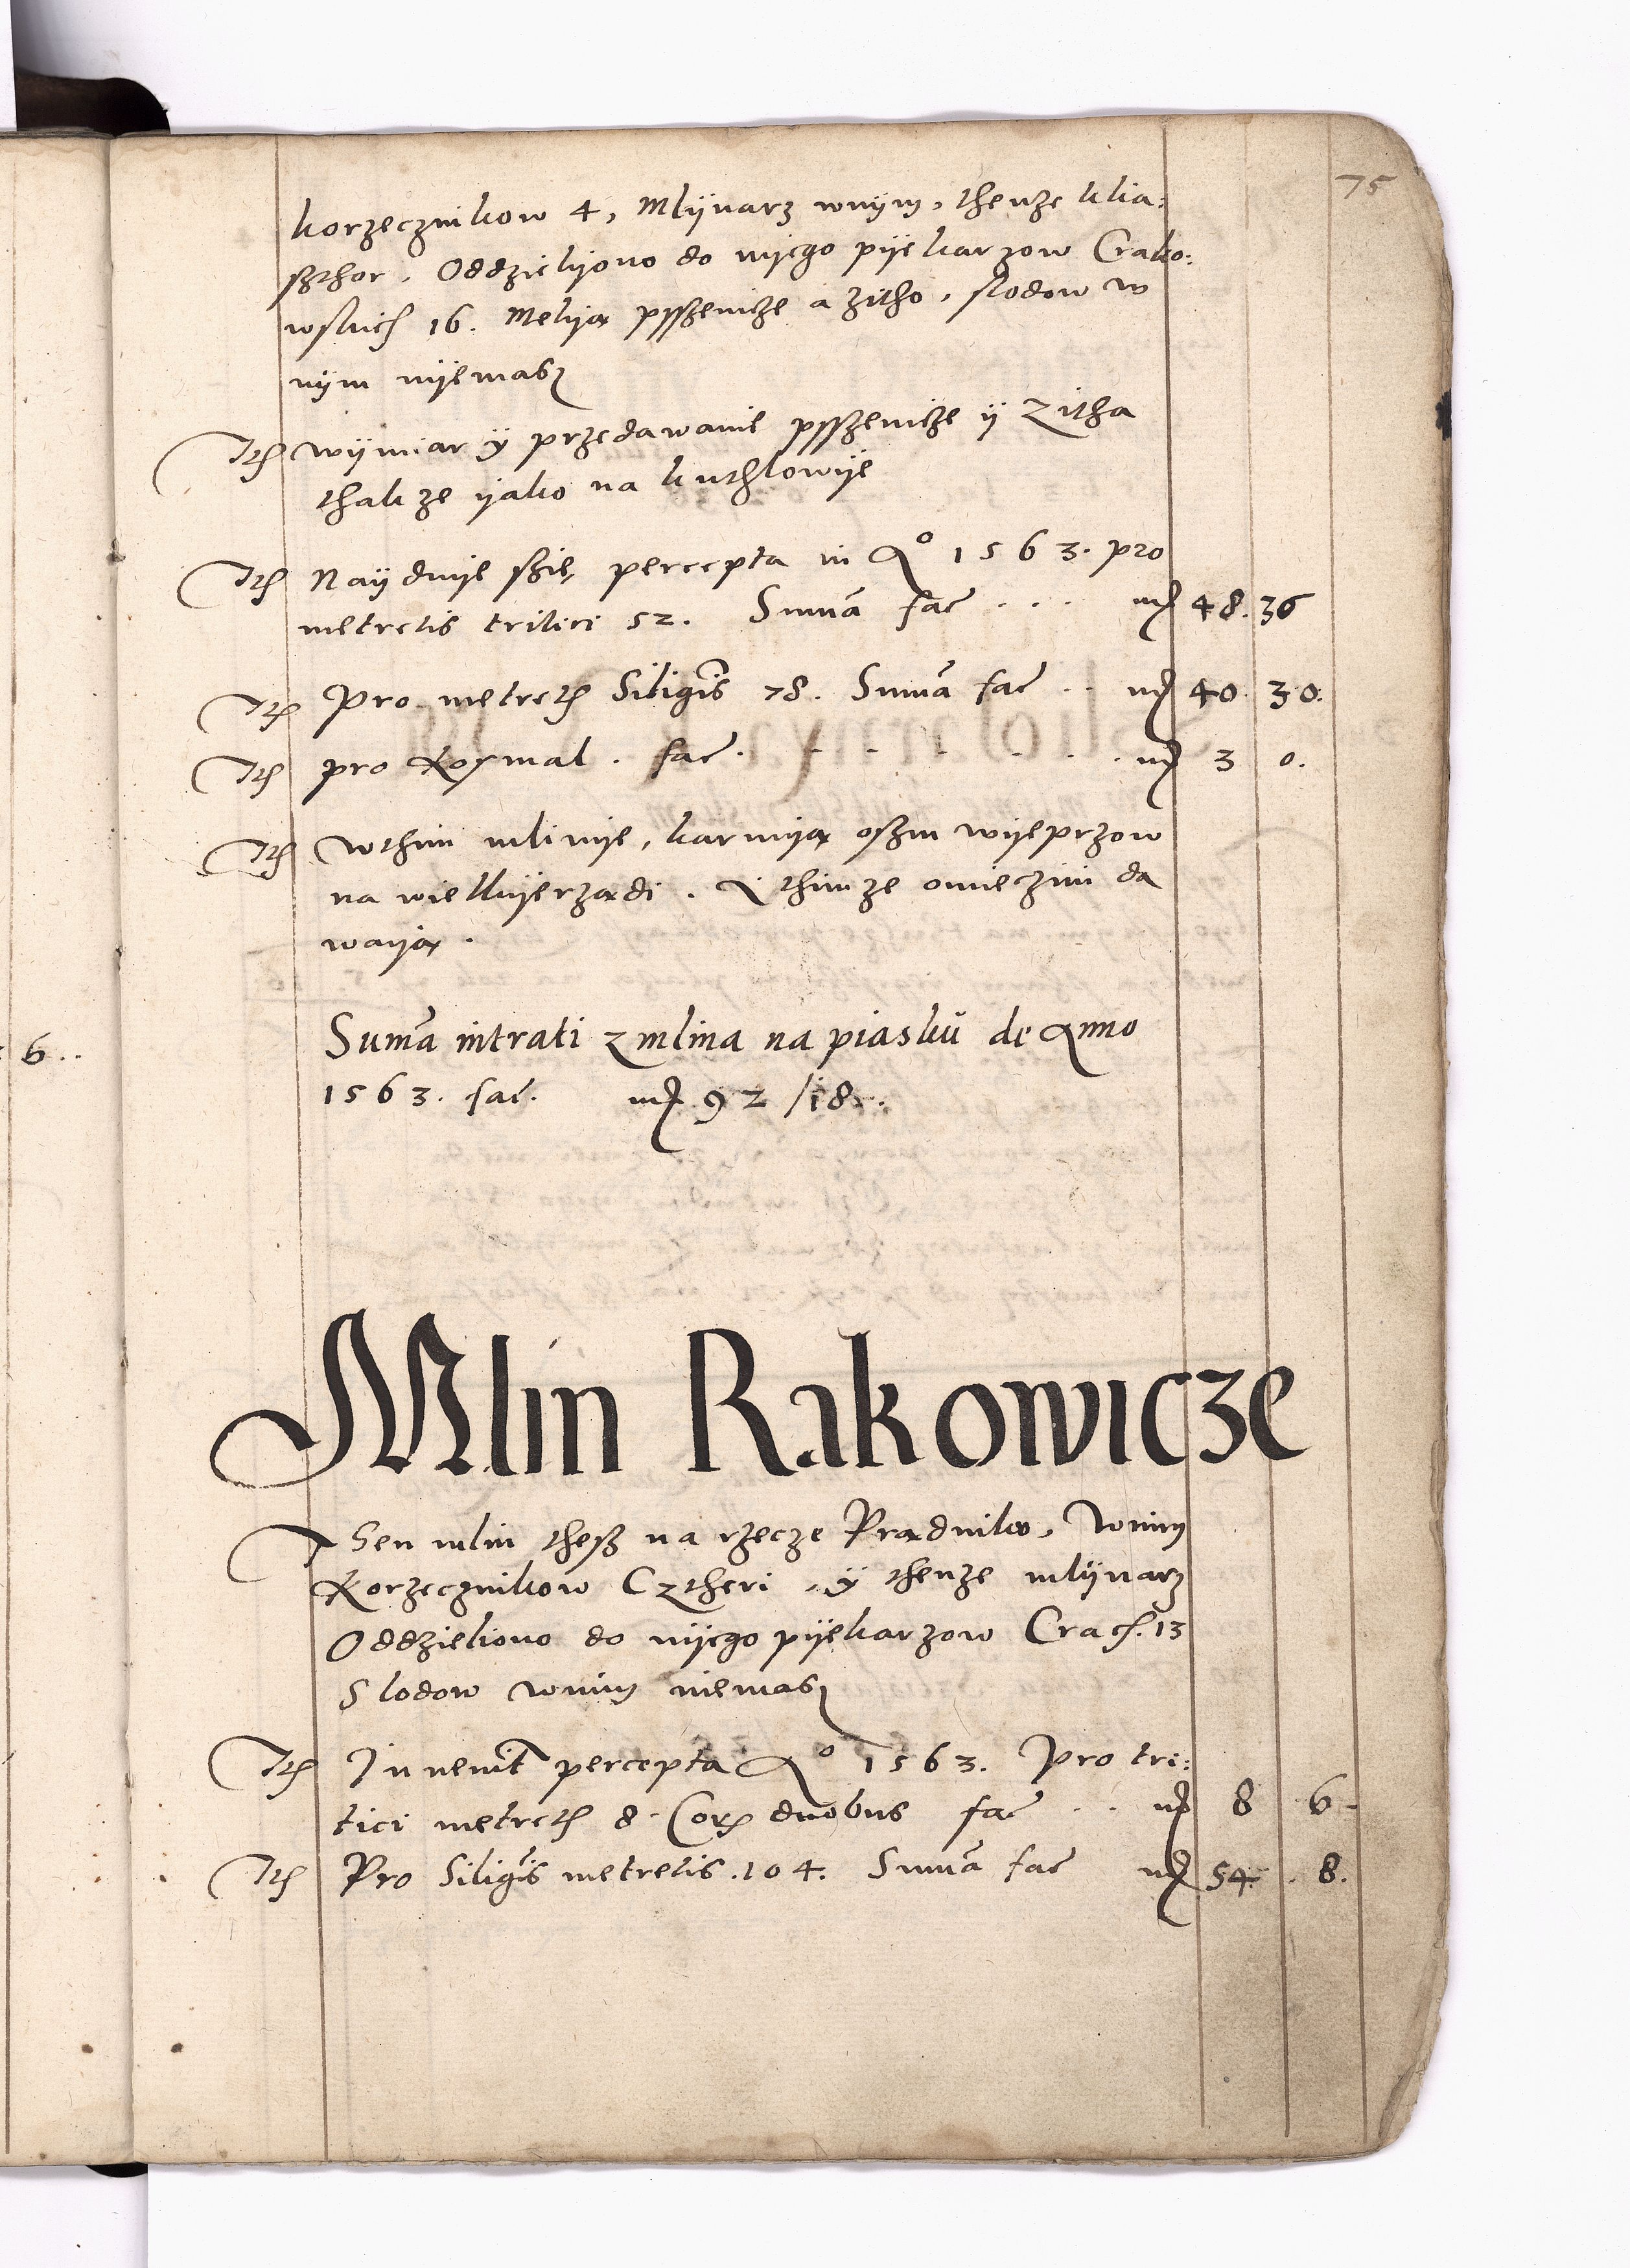 75
korzecznikow 4, Mlÿnarz wnÿm, thenże klia:
sszthor. Oddzielÿono do nÿego pÿekarzow Crako:
wskich 16. Melÿą psszenicze a zitho, slodow w
nÿm nÿemasz
Ith wÿmiar ÿ przedawanie psszenicze ÿ Zitha
thakze ÿako na kuthlowÿe
Ith Naÿduÿe szię percepta in Aº 1563. pro
metretis tritici 52. Suma fac̃ . . . mc 48. 36
Ith Pro metreth Siliginis 78. Suma fac̃ . . mc 40. 30.
Ith pro Rozmal . fac̃ . . . . . . mc 3 0.
Ith Wthim mlinÿe, karmÿą oszm wÿeprzow
na wielkÿerządi. A thimze omieczini da
waÿą .
Suma intrati z mlina na piasku de Anno
1563. fac̃. mc 92 /18.
6..
Mlin Rakowicze
Ten mlin thesz na rzecze Prądniko, Wnim
Korzecznikow Cztheri, ÿ thenze mlÿnarz
Oddzieliono do nÿego pÿekarzow Crac. 13
Slodow wnim niemasz
Ith Inuenit percepta Aº 1563. Pro tri:
tici metreth 8. Cor duobus fac̃ . . mc 8 6
Ith Pro Siliginis metretis. 104. Suma fac̃ mc 54. 8.